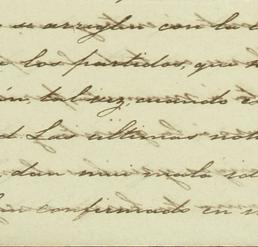 se arreglan con la
los partidos, que
tal vez, cuando
Las últimas
dan mui mala
confirmado en